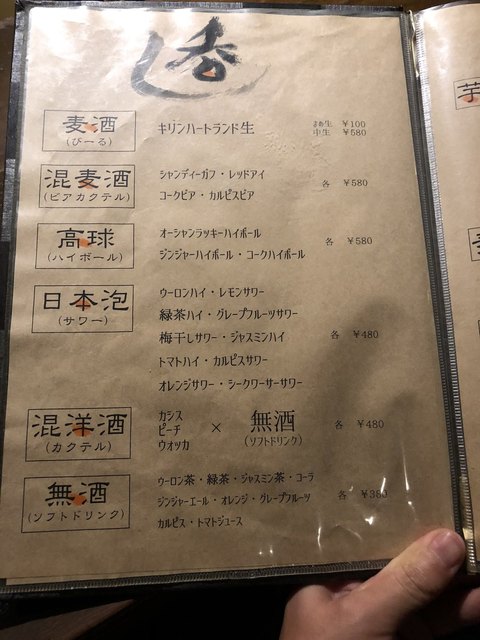 香
麦酒
(びーる)
キリンハートランド生
まめ生 ¥100
中生 ¥580
混麦酒
(ビアカクテル)
シャンディーガフ・レッドアイ
コークビア・カルピスビア
各 ¥580
高球
(ハイボール)
オーシャンラッキーハイボール
ジンジャーハイボール・コークハイボール
各 ¥580
日本泡
(サワー)
ウーロンハイ・レモンサワー
緑茶ハイ・グレープフルーツサワー
梅干しサワー・ジャスミンハイ
トマトハイ・カルピスサワー
オレンジサワー・シークワーサーサワー
各 ¥480
混洋酒
(カクテル)
カシス
ピーチ
ウオッカ
×
無酒
(ソフトドリンク)
各 ¥480
無酒
(ソフトドリンク)
ウーロン茶・緑茶・ジャスミン茶・コーラ
ジンジャーエール・オレンジ・グレープフルーツ
カルピス・トマトジュース
各 ¥380
芋